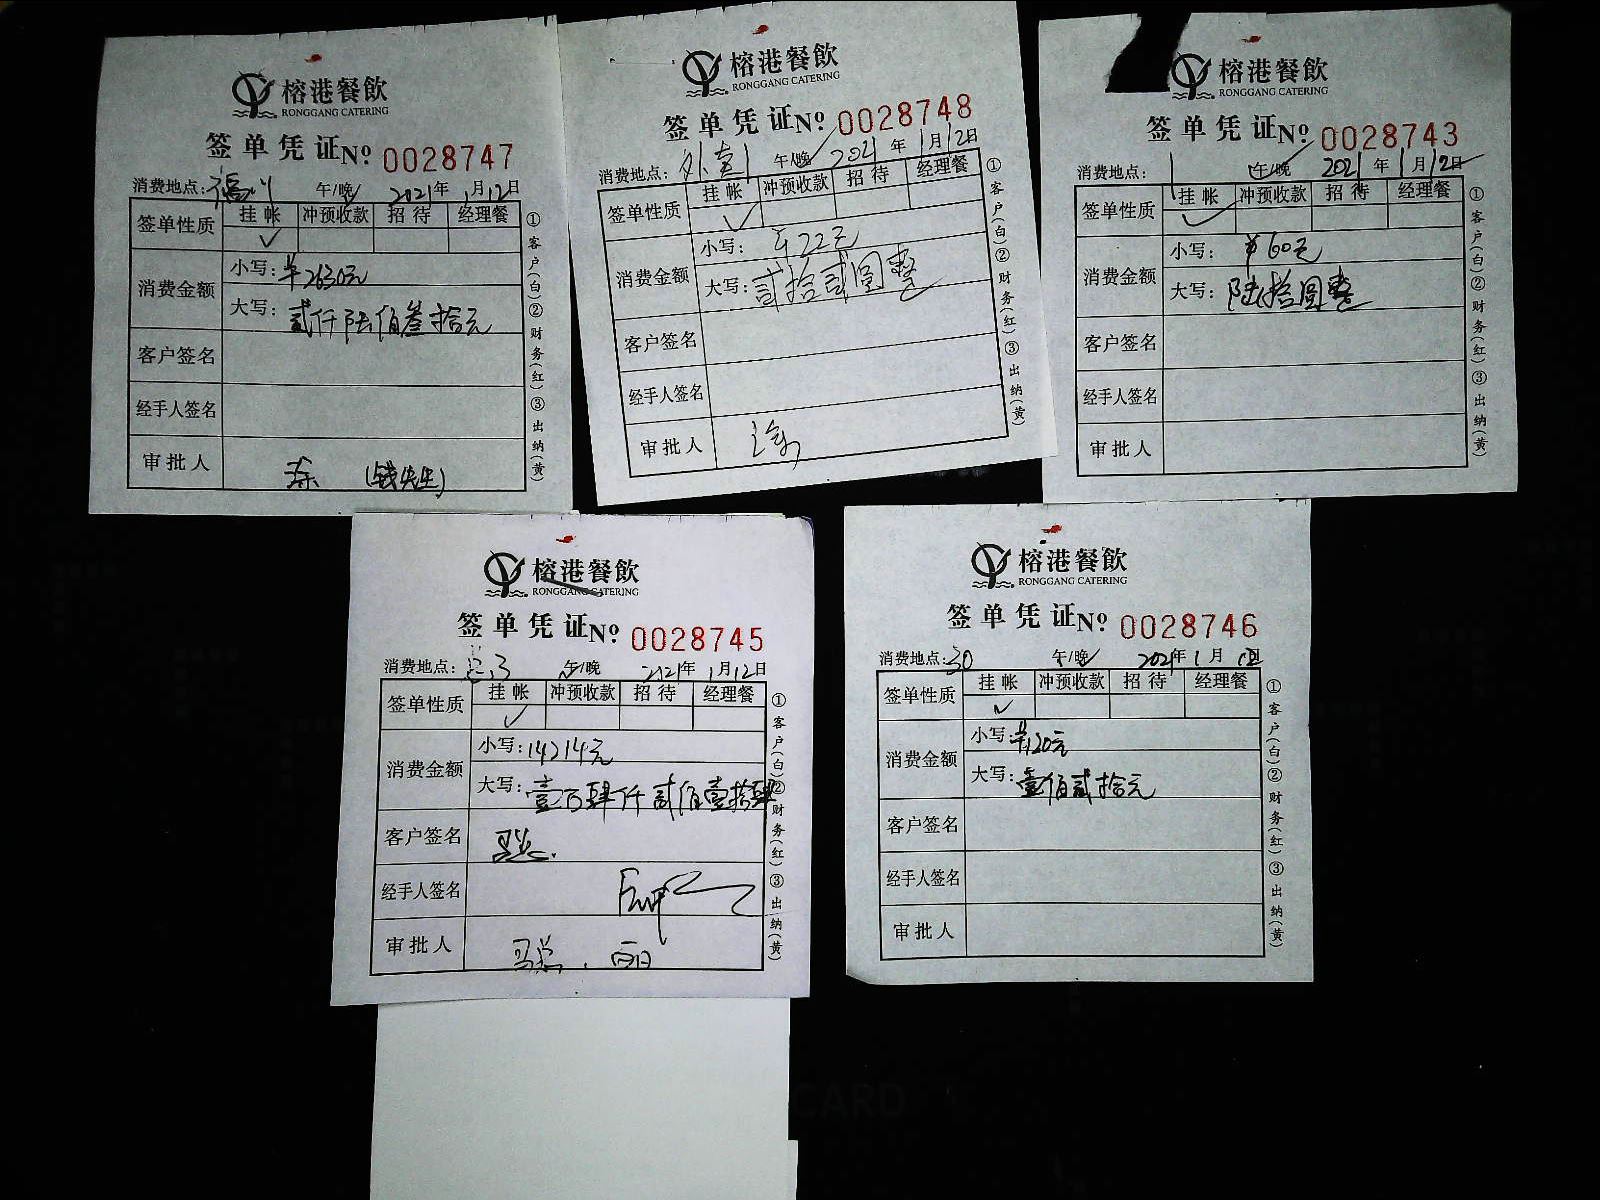 榕港餐飲
RONGGANG CATERING
签单凭证 Nº 0028747
消费地点: 午/晚 2021年1月12日
签单性质 挂帐 冲预收款 招待 经理餐
✓
消费金额 小写: ¥2630元
大写: 贰仟陆佰叁拾元
客户签名
经手人签名
审批人 (钱先生)
①客户(白)②财务(红)③出纳(黄)
榕港餐飲
RONGGANG CATERING
签单凭证 Nº 0028748
消费地点: 外卖1 午/晚 2021年1月12日
签单性质 挂帐 冲预收款 招待 经理餐
✓
消费金额 小写: ¥22元
大写: 贰拾贰圆整
客户签名
经手人签名
审批人
①客户(白)②财务(红)③出纳(黄)
榕港餐飲
RONGGANG CATERING
签单凭证 Nº 0028743
消费地点: 午/晚 2021年1月12日
签单性质 挂帐 冲预收款 招待 经理餐
✓
消费金额 小写: ¥60元
大写: 陆拾圆整
客户签名
经手人签名
审批人
①客户(白)②财务(红)③出纳(黄)
榕港餐飲
RONGGANG CATERING
签单凭证 Nº 0028745
消费地点: 午/晚 2021年1月12日
签单性质 挂帐 冲预收款 招待 经理餐
✓
消费金额 小写: 14214元
大写: 壹万肆仟贰佰壹拾肆
客户签名
经手人签名
审批人 马总
①客户(白)②财务(红)③出纳(黄)
榕港餐飲
RONGGANG CATERING
签单凭证 Nº 0028746
消费地点: 30 午/晚 2021年1月12日
签单性质 挂帐 冲预收款 招待 经理餐
✓
消费金额 小写: ¥120元
大写: 壹佰贰拾元
客户签名
经手人签名
审批人
①客户(白)②财务(红)③出纳(黄)
CARD